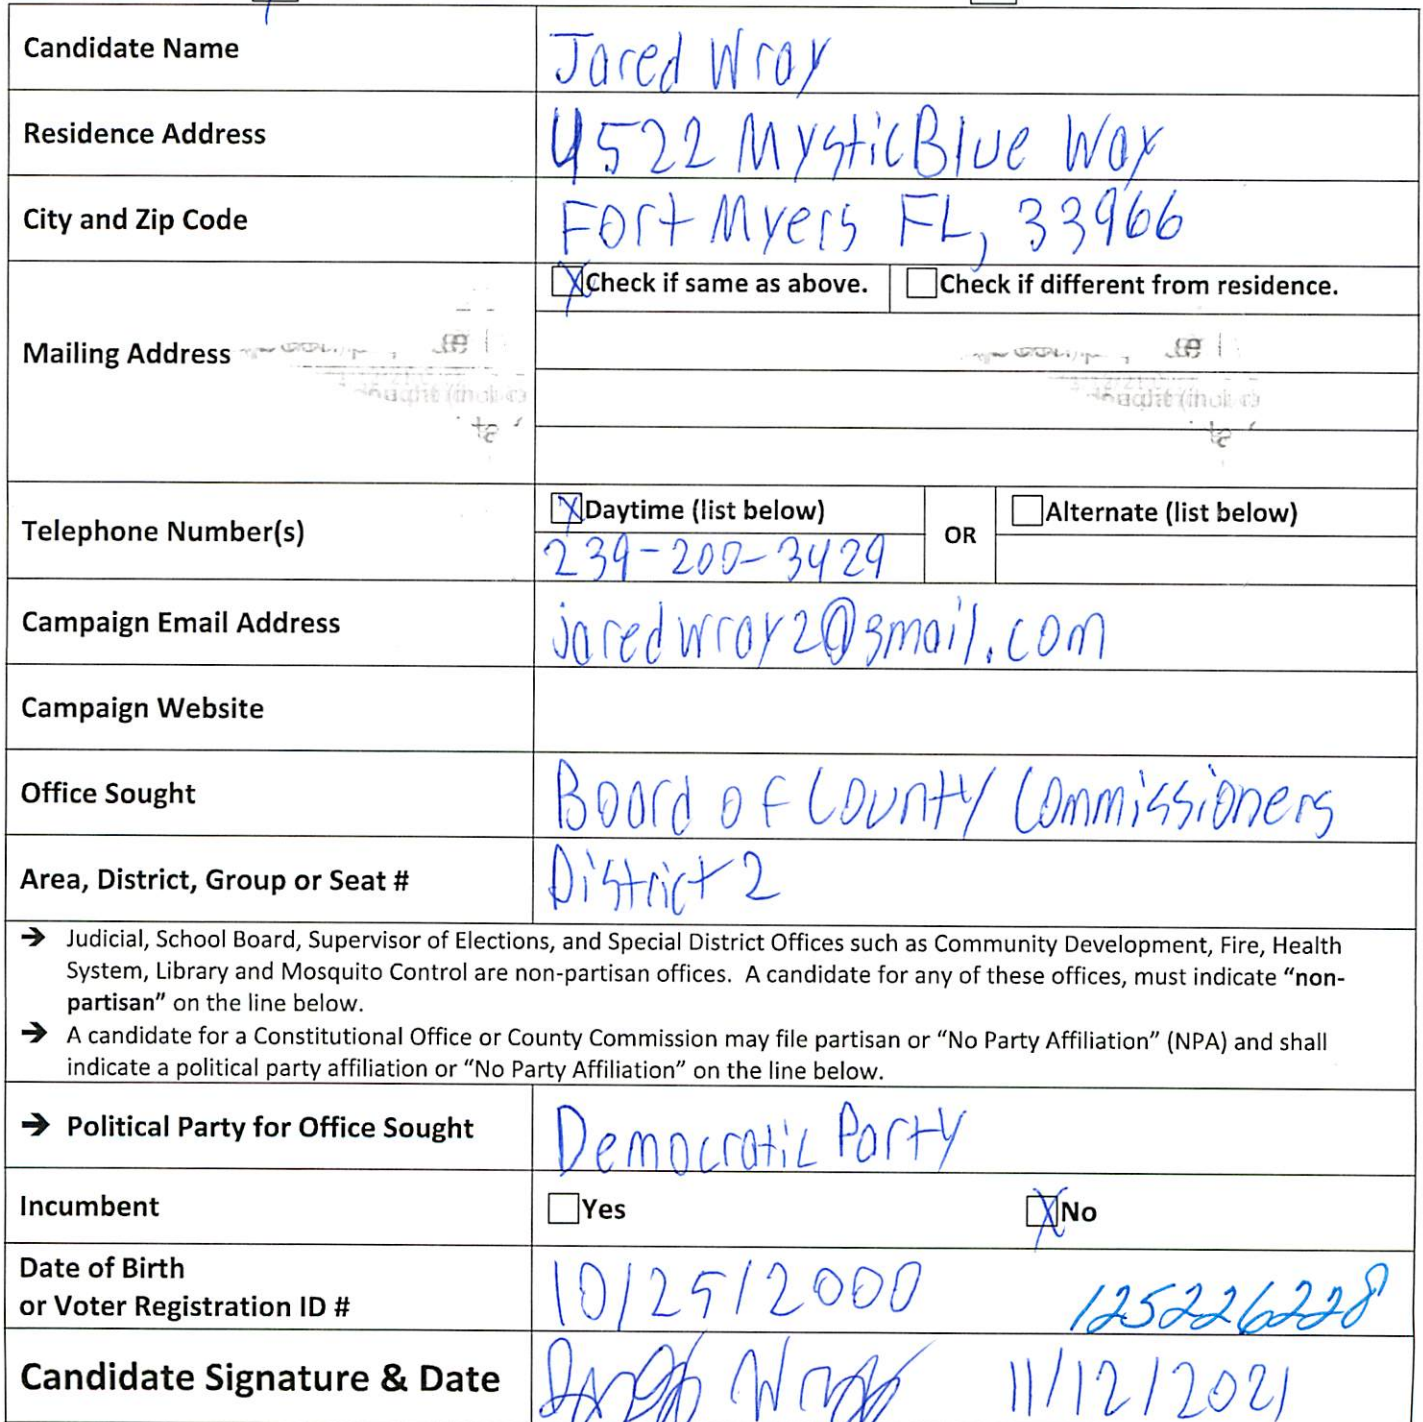 Candidate Name Jared Wray
Residence Address 4522 Mystic Blue Way
City and Zip Code Fort Myers FL, 33966
Check if same as above. Check if different from residence.
Mailing Address
Daytime (list below) Alternate (list below)
Telephone Number(s) OR
239-200-3429
Campaign Email Address jaredwray2@gmail.com
Campaign Website
Office Sought Board of County Commissioners
Area, District, Group or Seat # District 2
→ Judicial, School Board, Supervisor of Elections, and Special District Offices such as Community Development, Fire, Health
System, Library and Mosquito Control are non-partisan offices. A candidate for any of these offices, must indicate “non-
partisan” on the line below.
→ A candidate for a Constitutional Office or County Commission may file partisan or “No Party Affiliation” (NPA) and shall
indicate a political party affiliation or “No Party Affiliation” on the line below.
→ Political Party for Office Sought Democratic Party
Incumbent Yes No
Date of Birth
or Voter Registration ID # 10/25/2000 125226228
Candidate Signature & Date 11/12/2021